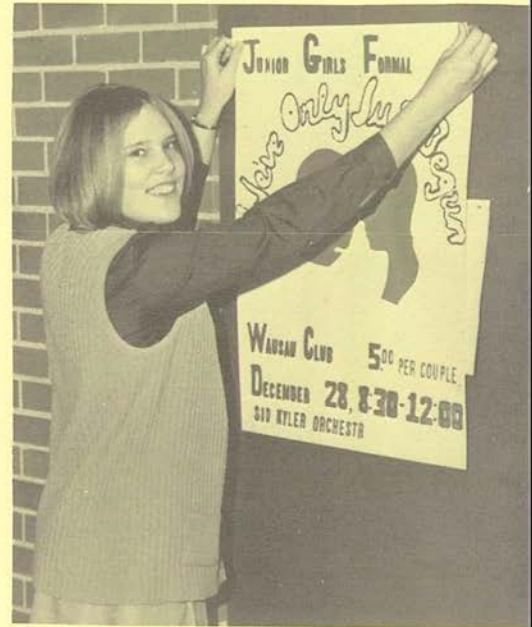 JUNIOR GIRLS FORMAL
We've Only Just Begun
WAUSAU CLUB 5.00 PER COUPLE
DECEMBER 28, 8:30-12:00
SID KYLER ORCHESTR